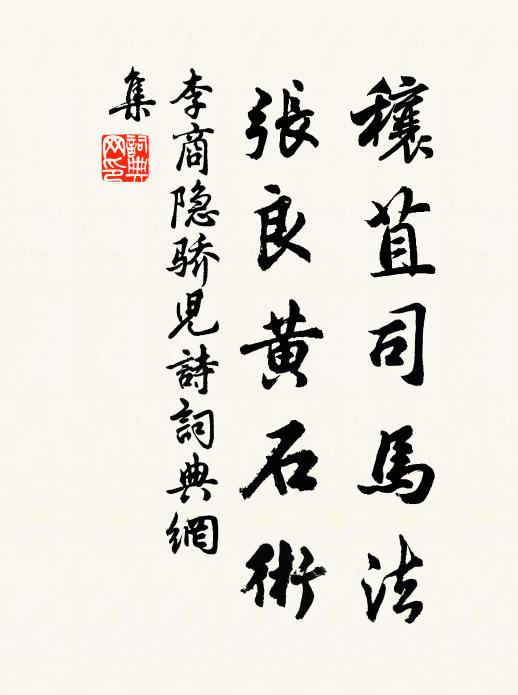 穰苴司馬法
張良黄石術
李商隐骄児詩詞典網
集
詞典網印